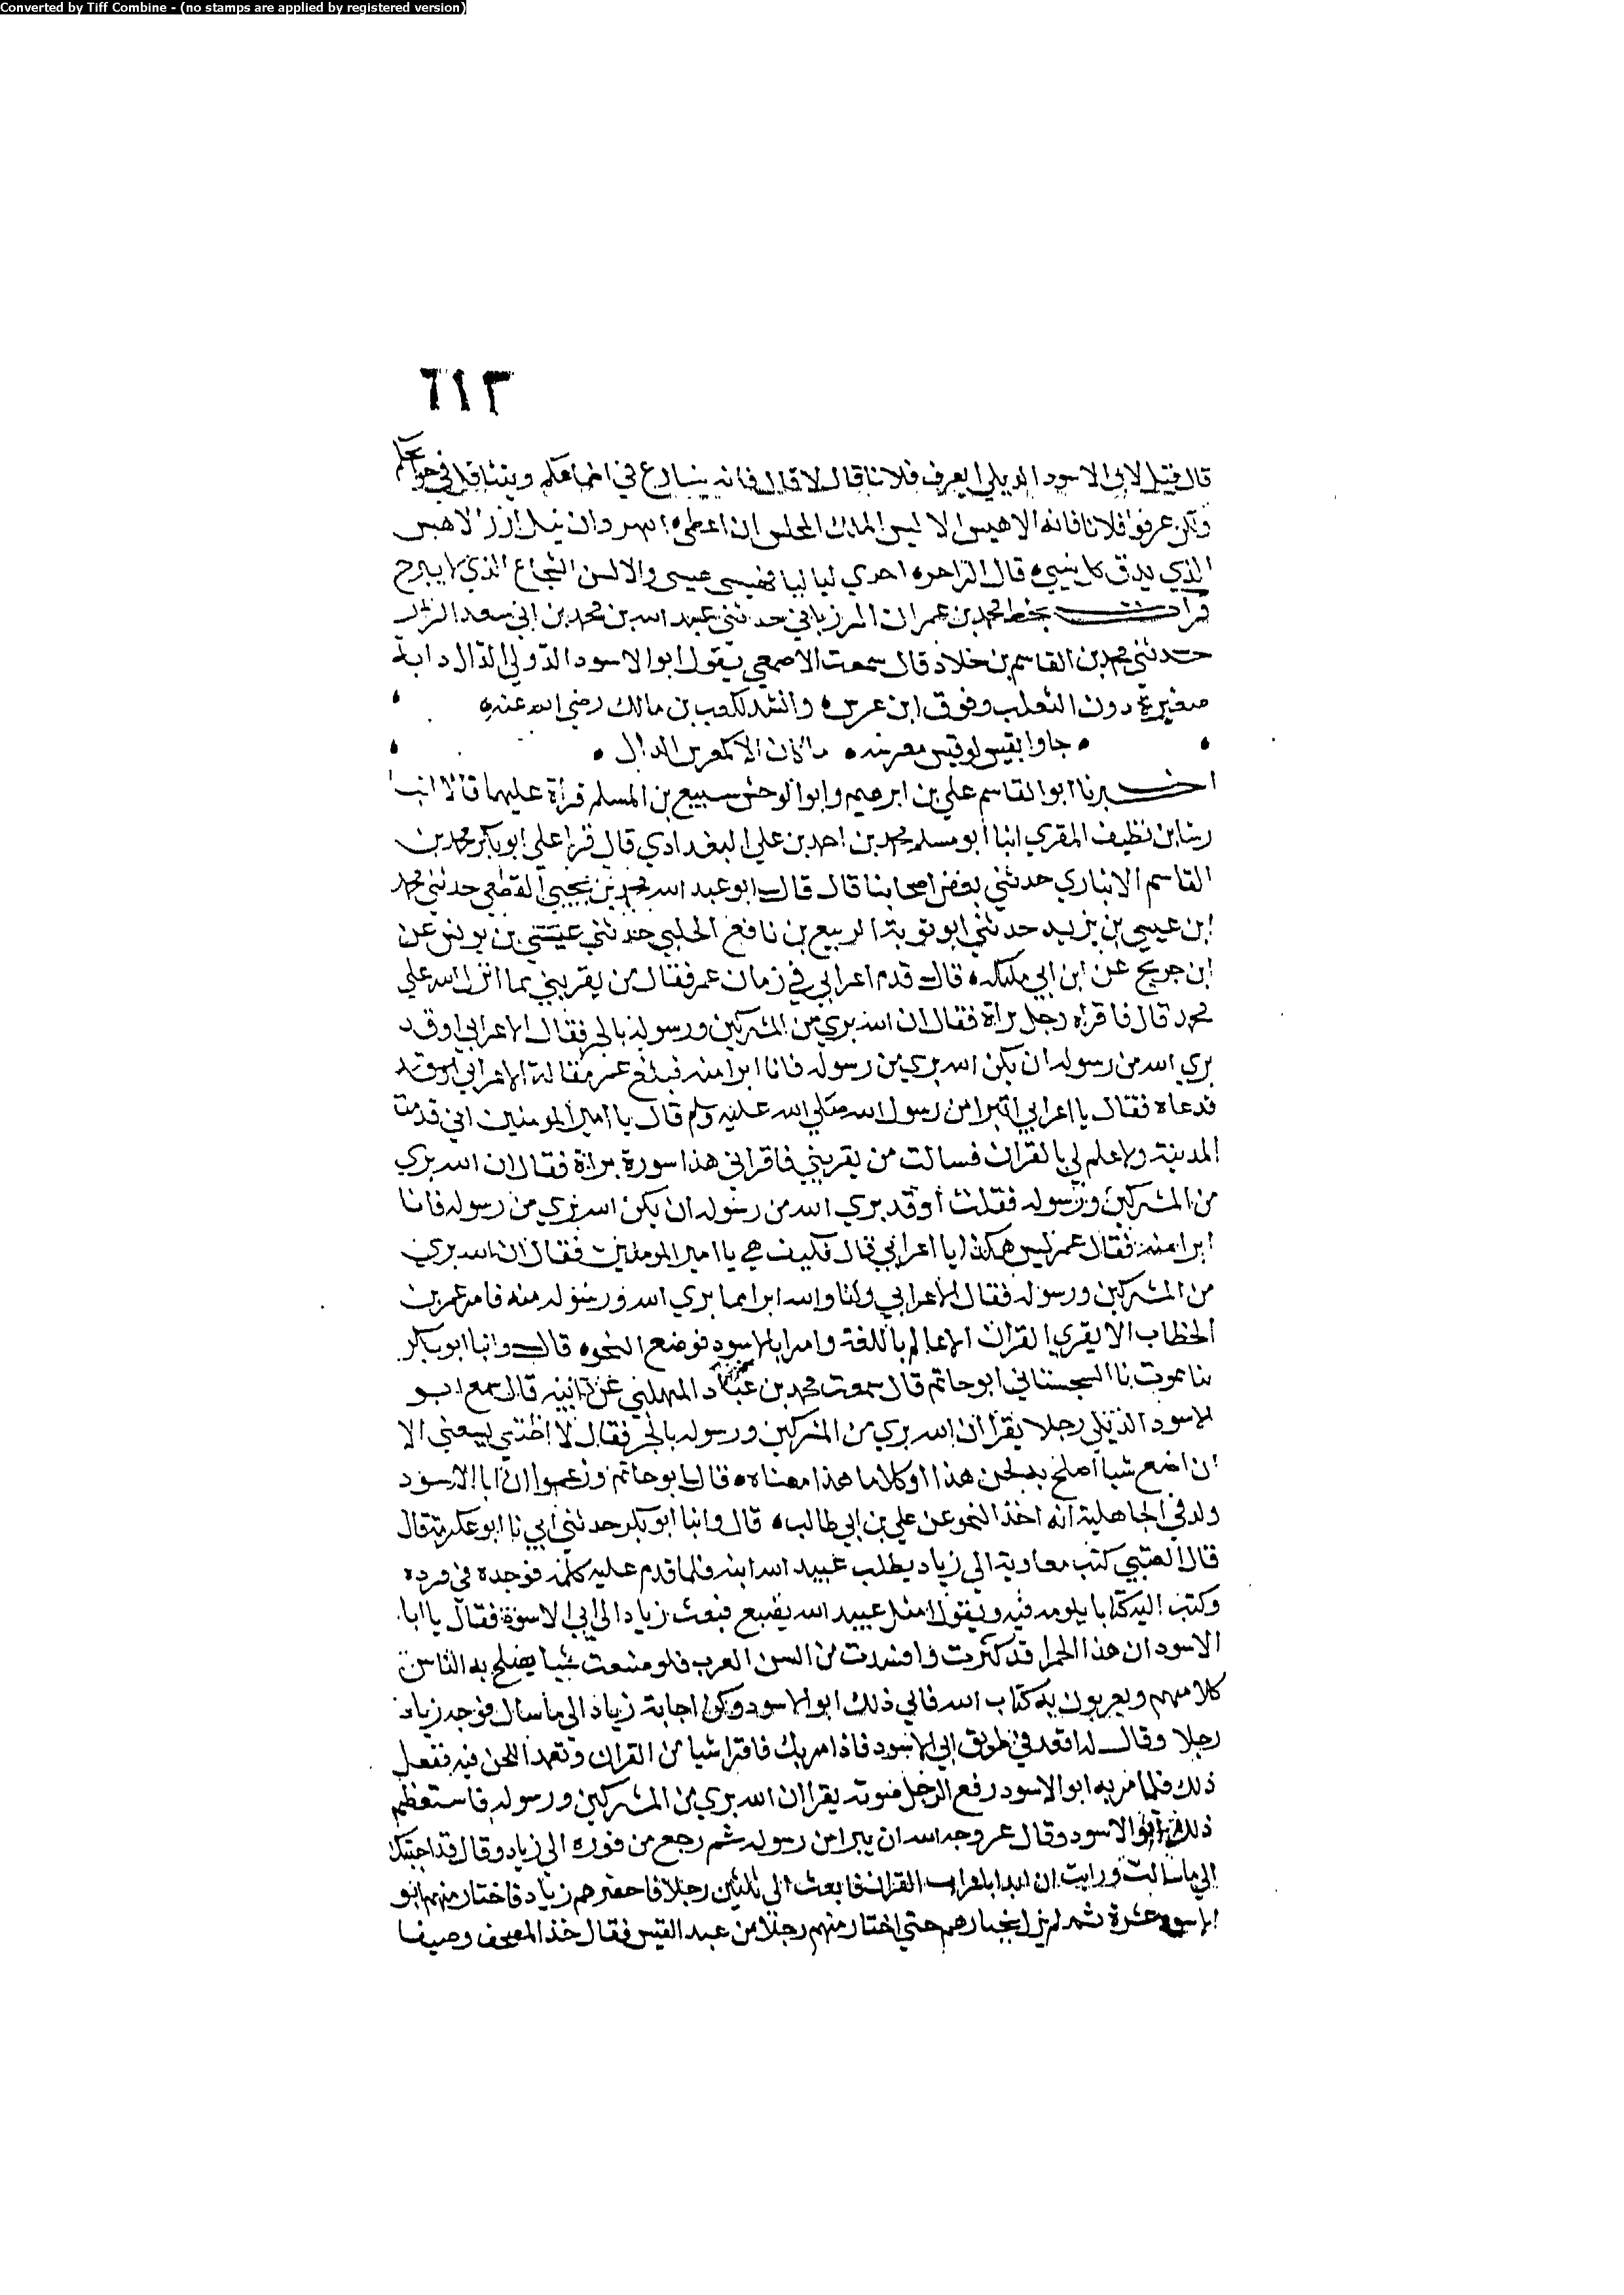 Converted by Tiff Combine - (no stamps are applied by registered version)
٦١٣
قال قيل لابي الاسود الديلي ايعرف فلانا قال لا قال فانه يسارع في ويتثاقل في حوائجكم
عرفوا فلانا فانه الاهيس الاليس الملد المحلس ان اعطي انتهز وان سيل ارز الاهيس
الذي يدق كل شيء قال الراجز احدي لياليك فهيسي هيسي والاليس الشجاع الذي لا يبرح
قرات بخط محمد بن عمران المرزباني حدثني عبد الله بن محمد بن ابي سعد البزار
حدثني محمد بن القاسم بن خلاد قال سمعت الاصمعي يقول ابو الاسود الدولي الدال دابة
صغيرة دون الثعلب وفوق ابن عرس وانشد لكعب بن مالك رضي الله عنه
جاوا بقيس لوقيس معرسه ما كان الا كمعرس الدال
اخبرنا ابو القاسم علي بن ابرهيم وابو الوحش سبيع بن المسلم قراة عليهما قالا انبا
رشا بن نظيف المقري انبا ابو مسلم محمد بن احمد بن علي البغدادي قال قرا علي ابو بكر محمد بن
القاسم الانباري حدثني بعض اصحابنا قال قال ابو عبد الله محمد بن يحيي القطعي حدثني محمد
ابن عيسي بن يزيد حدثني ابو توبة الربيع بن نافع الحلبي حدثني عيسي بن يونس عن
ابن جريج عن ابن ابي مليكه قال قدم اعرابي في زمان عمر فقال من يقريني مما انزل الله علي
محمد قال فاقراه رجل براة فقال ان الله بري من المشركين ورسوله بالجر فقال الاعرابي اوقد
بري الله من رسوله ان يكن الله بري من رسوله فانا ابرا منه فبلغ عمر مقالة الاعرابي
فدعاه فقال يا اعرابي اتبرا من رسول الله صلي الله عليه وسلم قال يا امير المومنين اني قدمت
المدينة ولا علم لي بالقران فسالت من يقريني فاقراني هذا سورة براة فقال ان الله بري
من المشركين ورسوله فقلت اوقد بري الله من رسوله ان يكن الله بري من رسوله فانا
ابرا منه فقال عمر ليس هكذا يا اعرابي قال فكيف هي يا امير المومنين فقال ان الله بري
من المشركين ورسوله فقال الاعرابي وانا والله ابرا مما بري الله ورسوله منه فامر عمر بن
الخطاب الا يقري القران الا عالم باللغة وامر ابا الاسود فوضع النحو قال وانبا ابو بكر
نا يموت نا السجستاني ابو حاتم قال سمعت محمد بن عباد المهلبي عن ابيه قال سمع ابو
الاسود الديلي رجلا يقرا ان الله بري من المشركين ورسوله بالجر فقال لا اظنني يسعني الا
ان اضع شيا اصلح به لحن هذا او كلاما هذا معناه قال ابو حاتم وزعموا ان ابا الاسود
ولد في الجاهلية انه اخذ النحو عن علي بن ابي طالب قال وانبا ابو بكر حدثني ابي نا ابو عكرمة قال
قال العتبي كتب معاوية الي زياد يطلب عبيد الله ابنه فلما قدم عليه كلمه فوجده فرده
وكتب اليه كتابا يلومه فيه ويقول امثل عبيد الله يضيع فبعث زياد الي ابي الاسود فقال يا ابا
الاسود ان هذه الحمرا قد كثرت وافسدت من السن العرب فلو وضعت شيا يصلح به الناس
كلامهم ويعربون به كتاب الله فابي ذلك ابو الاسود وكره اجابة زياد الي ما سال فوجه زياد
رجلا وقال له اقعد في طريق ابي الاسود فاذا مر بك فاقرا شيا من القران وتعمد اللحن فيه ففعل
ذلك فلما مر به ابو الاسود رفع الرجل صوته يقرا ان الله بري من المشركين ورسوله فاستعظم
ذلك ابو الاسود وقال عز وجه الله ان يبرا من رسوله ثم رجع من فوره الي زياد وقال قد اجبتك
الي ما سالت ورايت ان ابدا باعراب القران فابعث الي ثلثين رجلا فاحضرهم زياد فاختار منهم ابو
الاسود عشرة ثم لم يزل يختارهم حتي اختار منهم رجلا من عبد القيس فقال خذ المصحف وصبغا